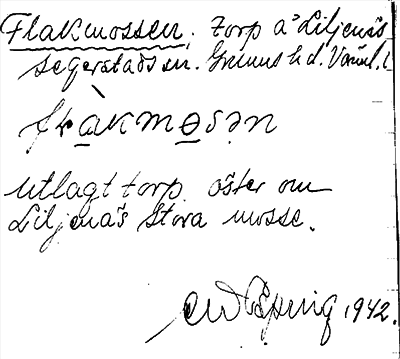 Flakmossen, torp å Liljenäs
Segerstads sn. Grums hd. Värml. l.
flàkmosən
Utlagt torp öster om
Liljenäs Stora mosse.
1942.